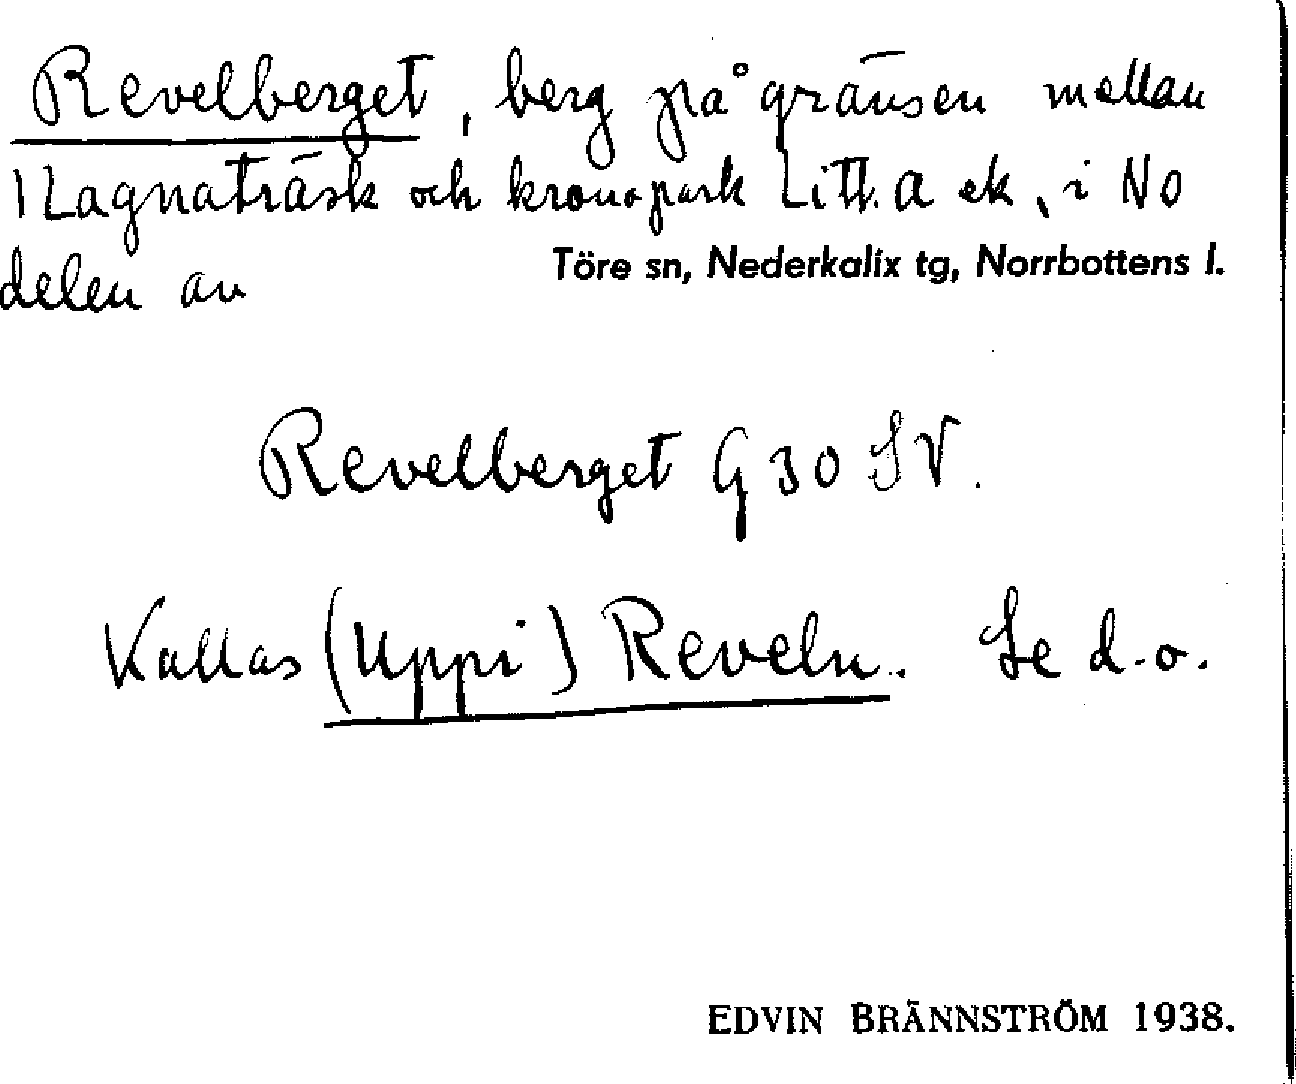 Revelberget, berg på gränsen mellan
1 Lagnaträsk och kronopark Litt. a ek, i NO
delen av
Töre sn, Nederkalix tg, Norrbottens l.
Revelberget G 30 SV.
Kallas (Uppi) Reveln. Se d.o.
EDVIN BRÄNNSTRÖM 1938.